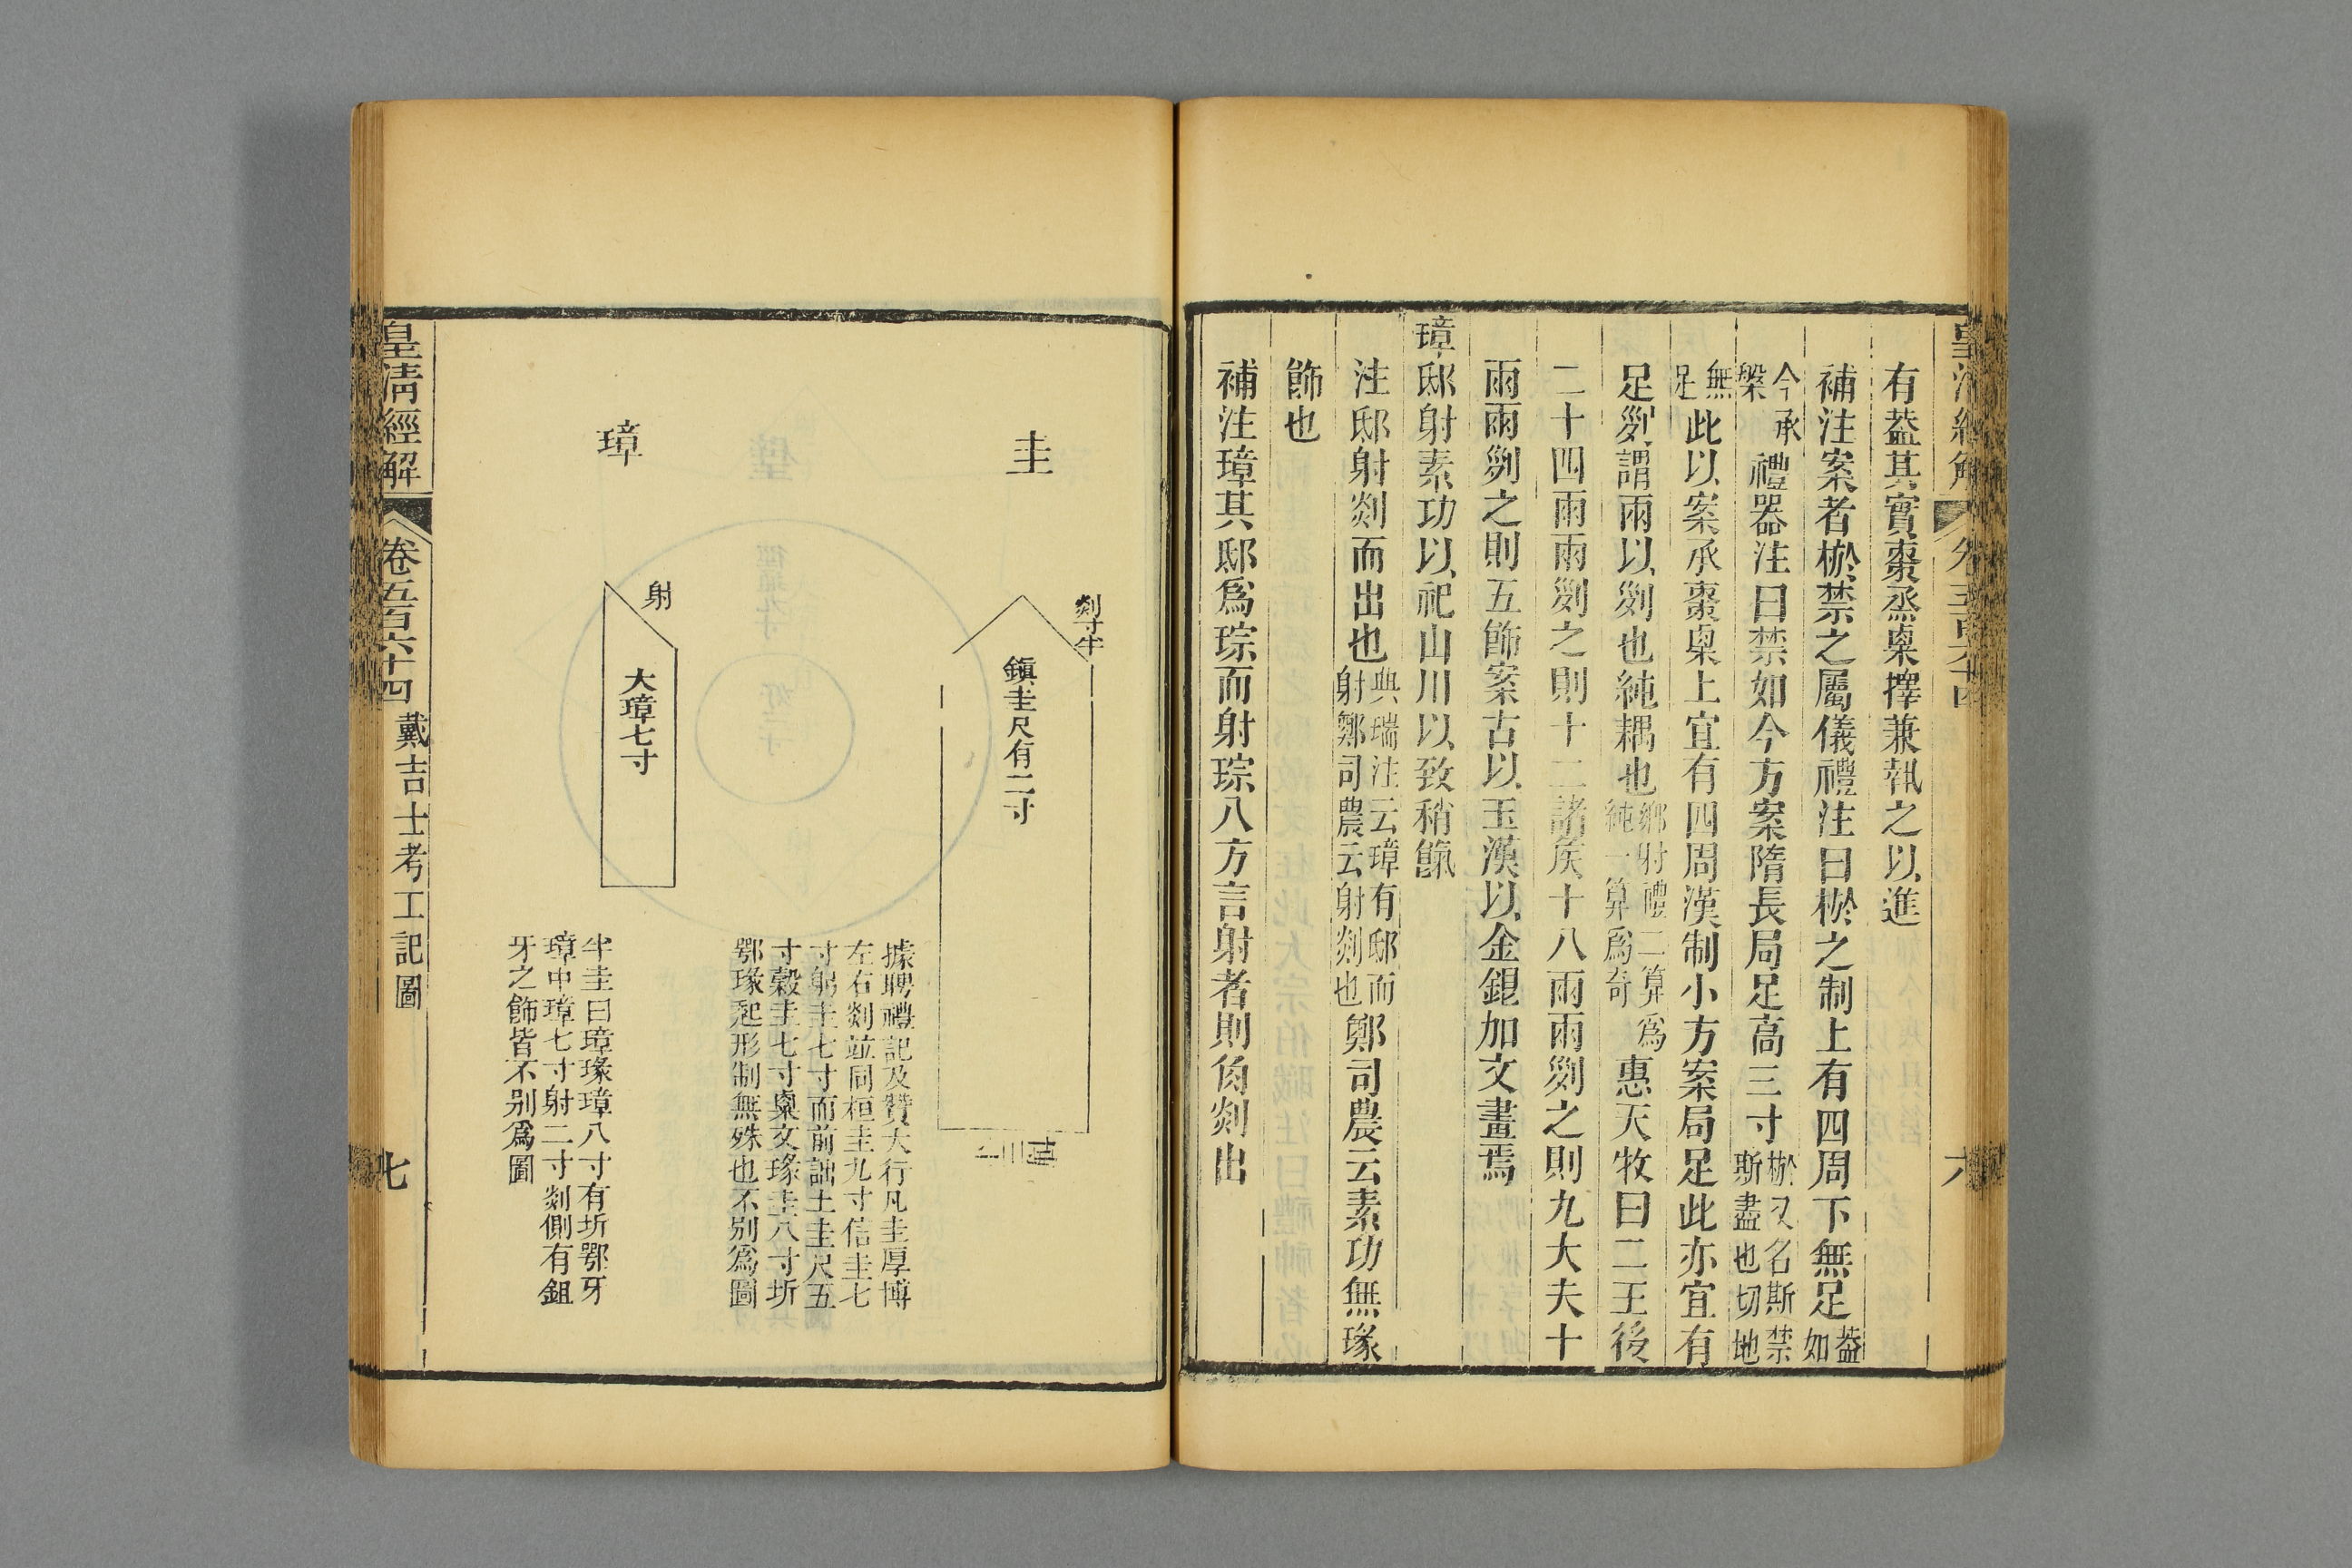 有葢其實棗烝㮚擇兼執之以進
補注案者棜禁之屬儀禮注曰棜之制上有四周下無足葢如
今承槃
禮器注曰禁如今方案隋長局足高三寸棜又名斯禁
斯盡也切地
無足
此以案承棗㮚上宜有四周漢制小方案局足此亦宜有
足㔞謂兩以㔞也純耦也鄉射禮二算爲
純一算爲奇
惠天牧曰二王後
二十四兩兩㔞之則十二諸矦十八兩兩㔞之則九大夫十
兩兩㔞之則五飾案古以玉漢以金錕加文畫焉
璋邸射素功以祀山川以致稍餼
注邸射剡而出也典瑞注云璋有邸而
射鄭司農云射剡也
鄭司農云素功無瑑
飾也
補注璋其邸爲琮而射琮八方言射者則角剡出
皇清經解
卷五百六十四
六
圭
剡寸半
鎮圭尺有二寸
博三寸
據聘禮記及贊大行凡圭厚博
左右剡竝同桓圭九寸信圭七
寸躬圭七寸而前詘土圭尺五
寸穀圭七寸㮚文瑑圭八寸圻
鄂瑑起形制無殊也不別爲圖
璋
射
大璋七寸
半圭曰璋瑑璋八寸有圻鄂牙
璋中璋七寸射二寸剡側有鉏
牙之飾皆不別爲圖
皇清經解
卷五百六十四
戴吉士考工記圖
七